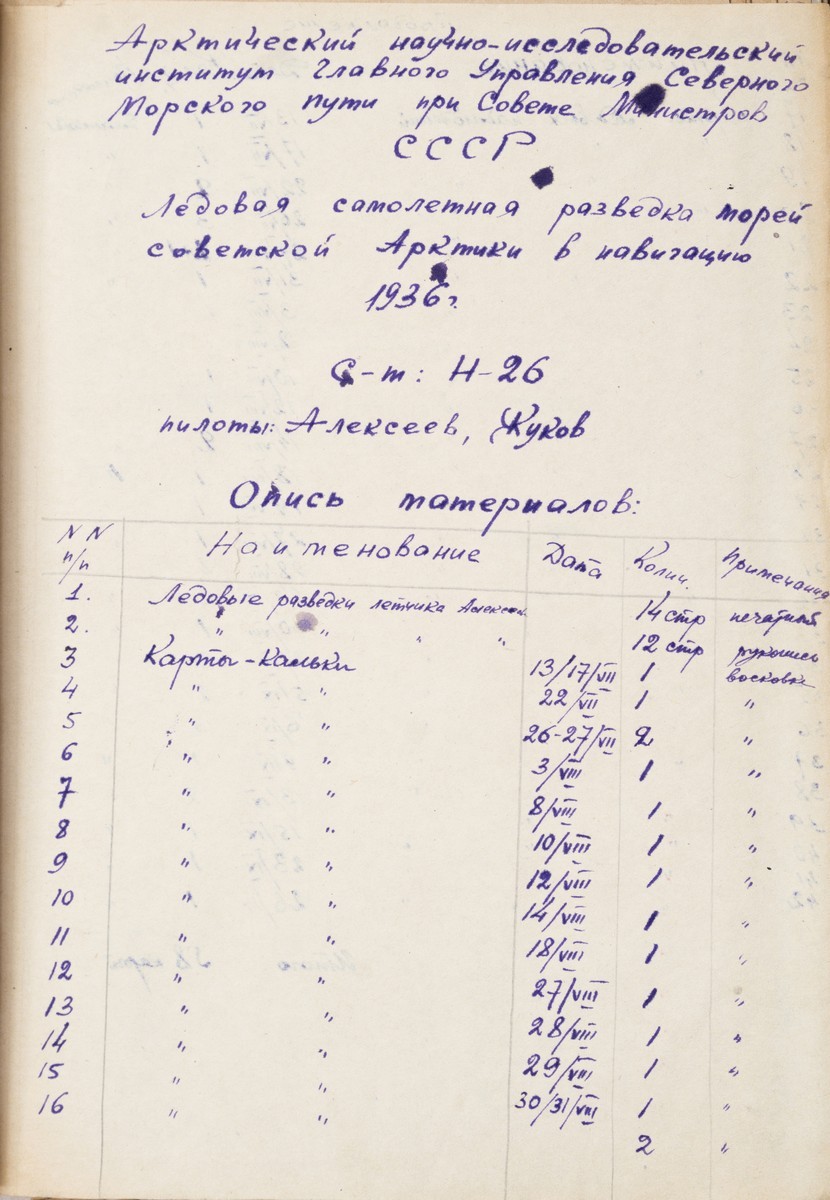 Арктический научно-исследовательский
институт Главного Управления Северного
Морского пути при Совете Министров
СССР
Ледовая самолетная разведка морей
советской Арктики в навигацию
1936 г.
С-т: Н-26
пилоты: Алексеев, Жуков
Опись материалов:
NN п/п Наименование Дата Колич. Примечания
1. Ледовые разведки летчика Алексеев. 14 стр печатный
2. " " " " 12 стр рукопись
3 Карты-кальки 13/17/VII 1 восковка
4 " " 22/VII 1 "
5 " " 26-27/VII 2 "
6 " " 3/VIII 1 "
7 " " 8/VIII 1 "
8 " " 10/VIII 1 "
9 " " 12/VIII 1 "
10 " " 14/VIII 1 "
11 " " 18/VIII 1 "
12 " " 27/VIII 1 "
13 " " 28/VIII 1 "
14 " " 29/VIII 1 "
15 " " 30/31/VIII 1 "
16 " " 2 "